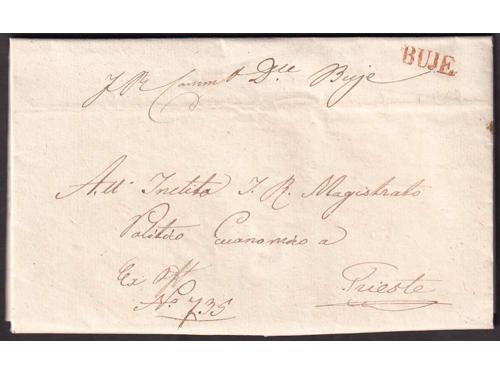 BUJE
J R Comm.to D.le Buje
All' Inclito J. R. Magistrato
Politico Economico a
Ex Off.
Trieste
No. 735